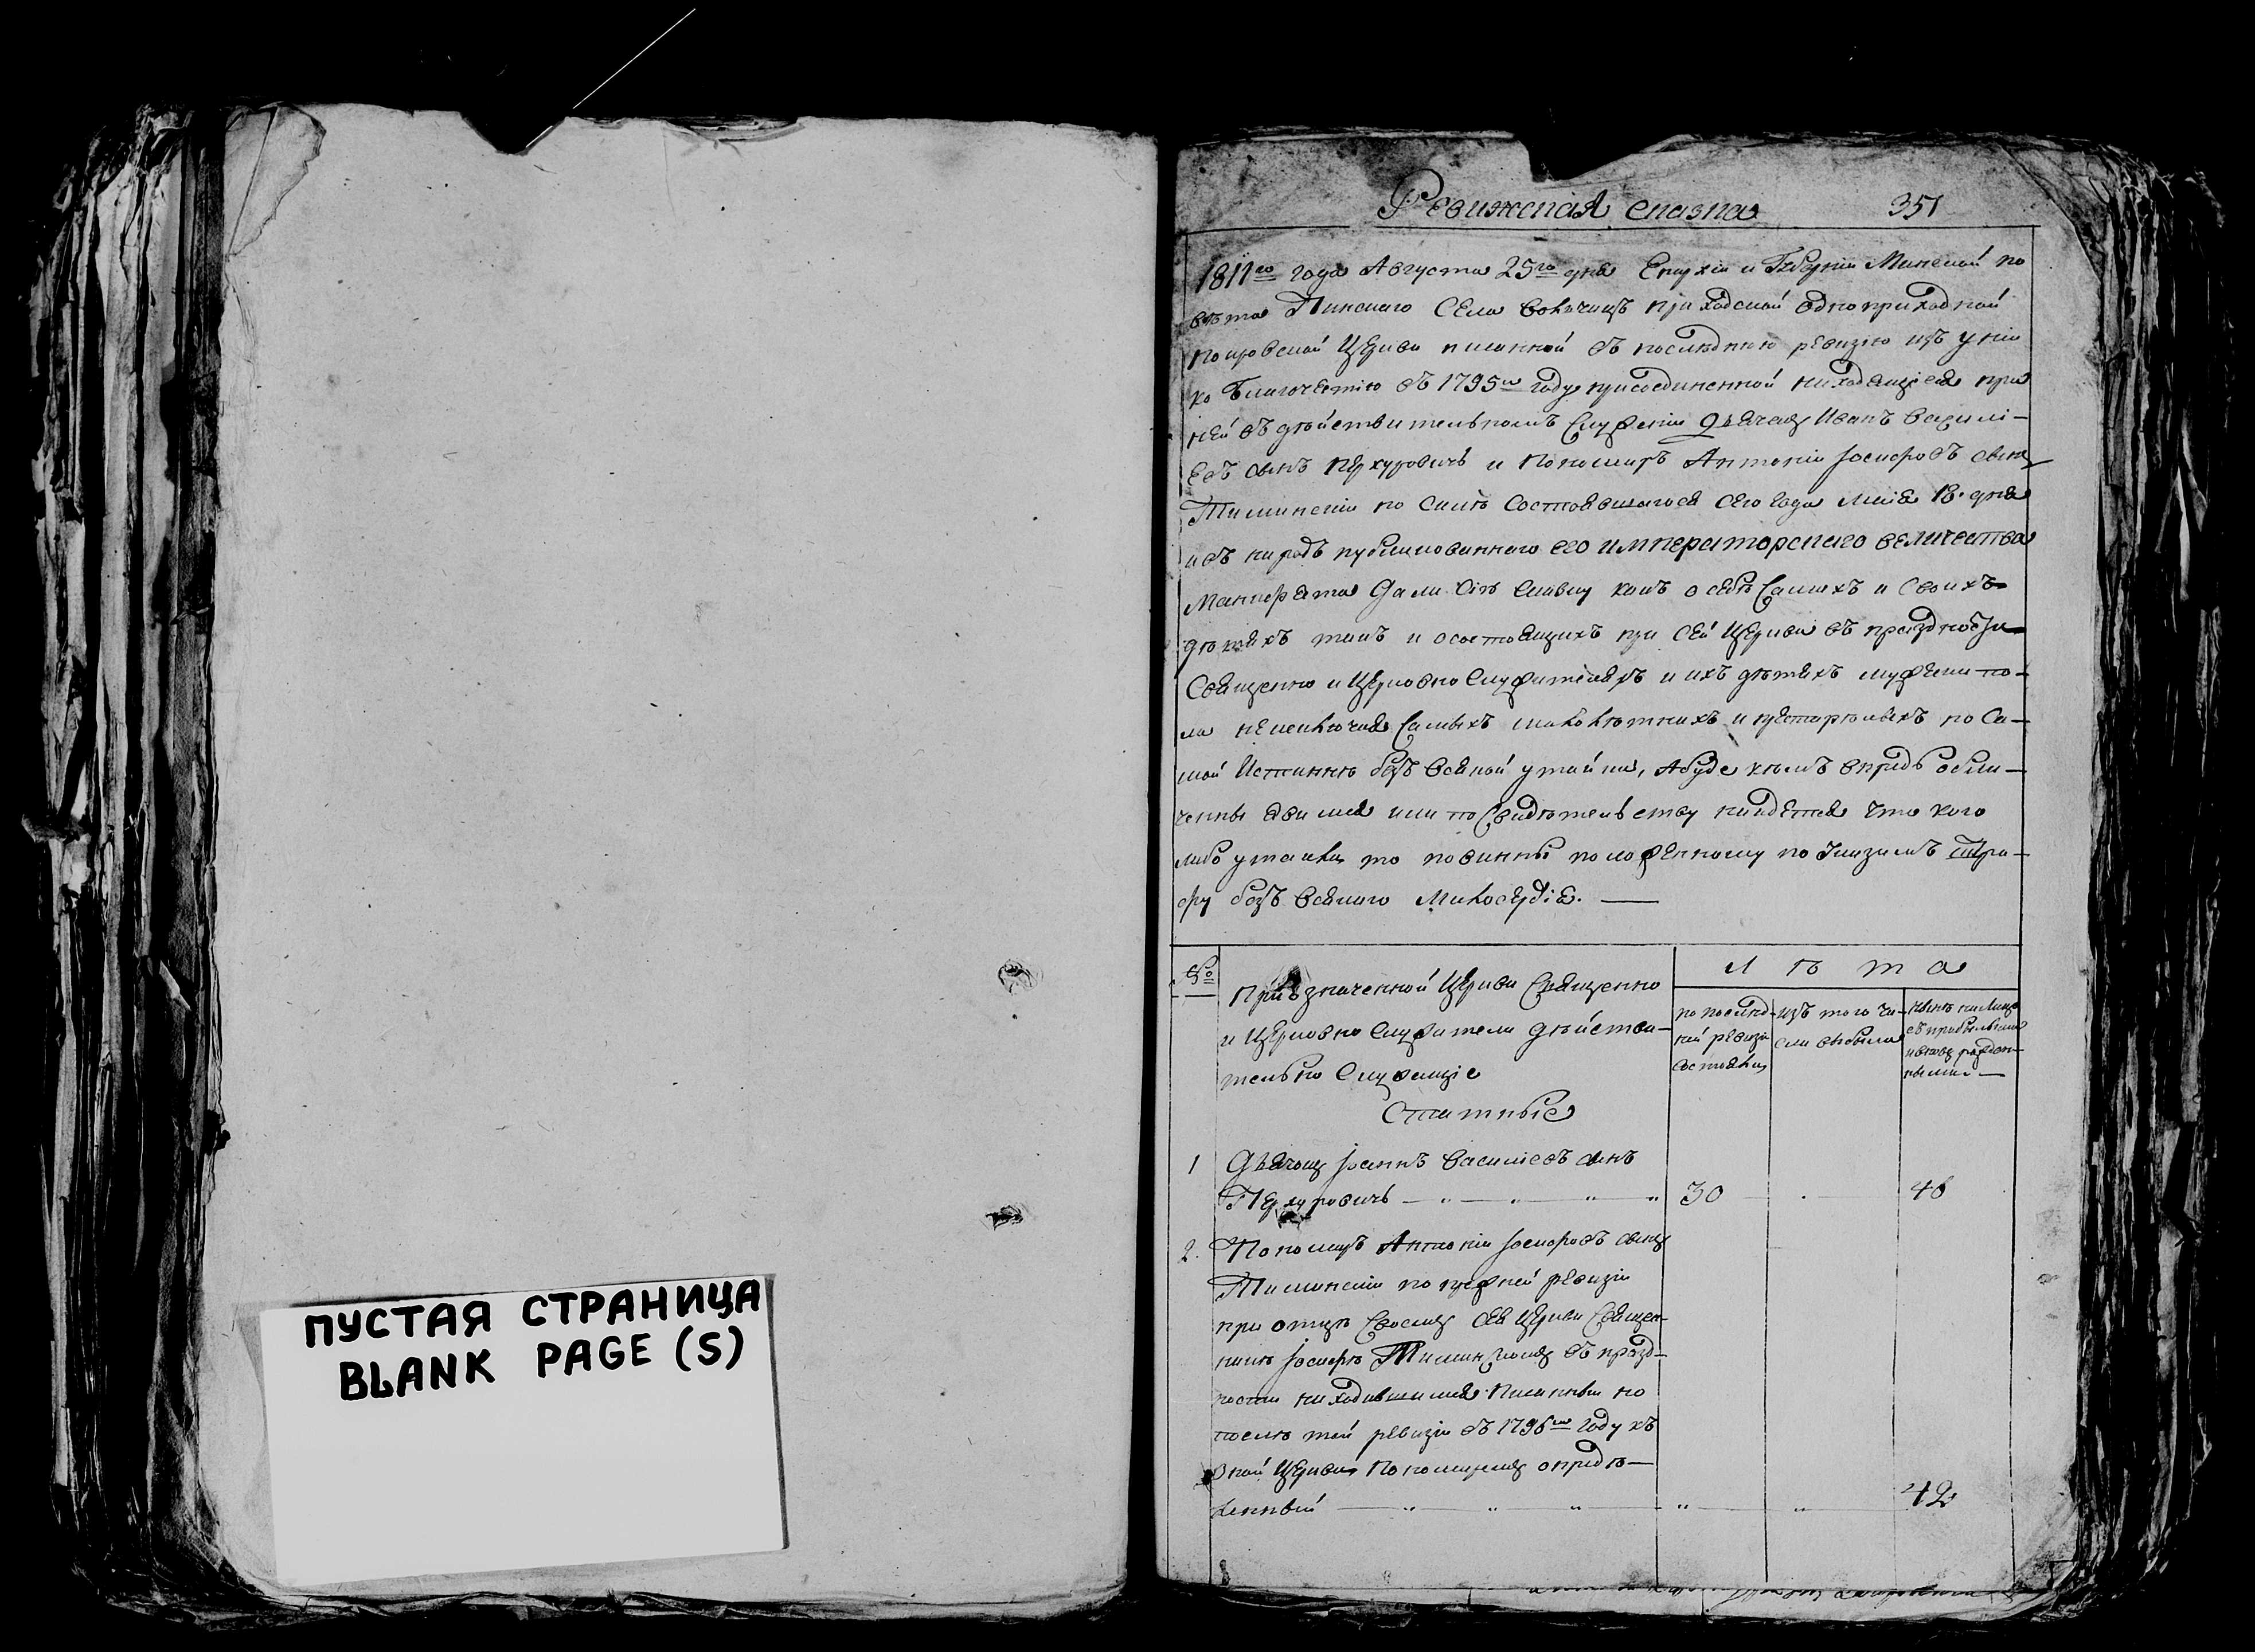 ПУСТАЯ СТРАНИЦА
BLANK PAGE (S)
Ревижская сказка 351
1811го года Августа 25го дня Епархіи и Губерніи Минской по
вѣта Пинскаго Села приходской одноприходной
Покровской Церкви писанной въ послѣднюю ревизію изъ уніи
ко Благочестію въ 1795м году присоединенной находящіеся при
ней въ дѣйствительномъ Служеніи Дьячекъ Иванъ Василі-
евъ сынъ и Пономарь Антоній Іосифовъ сынъ
по силѣ Состоявшагося Сего года маія 18. дня
и въ народъ публикованнаго его императорскаго величества
Манифеста Дали Сію Сказку какъ о себѣ Самихъ и Своихъ
дѣтяхъ такъ и осостоящихъ при Сей Церкви въ праздности
Священно и Церковно Служителяхъ и ихъ дѣтяхъ мужеска по-
ла неисключая Самыхъ малолѣтнихъ и престарелыхъ по Са-
мой Истиннѣ безъ Всякой утайки, Абуде кѣмъ впредь обли-
ченны явимся или по Свидѣтельству найдется что кого
либо утаили то повинны положенному по Указамъ Штра-
фу безъ Всякаго Милосердія.
№
Привзначенной Церкви Священно
и Церковно Служители дѣйстви-
тельно Служащіе
Л ѣ т а
по послѣд-
ней ревизіи
Состояли
изъ того чи-
сла выбыло
нынѣ на лицо
съ прибылыми
и вновь рожден-
ными
Статные
1 Дьячекъ Іоаннъ Василіевъ сынъ
30 46
2. Пономарь Антоній Іосифовъ сынъ
по прежней ревизіи
при отцѣ Своемъ Сея Церкви Священ-
никѣ Іосифѣ въ празд-
ности находившимся писанный по
послѣ той ревизіи въ 1796м году къ
оной Церкви Пономаремъ опредѣ-
ленный 42